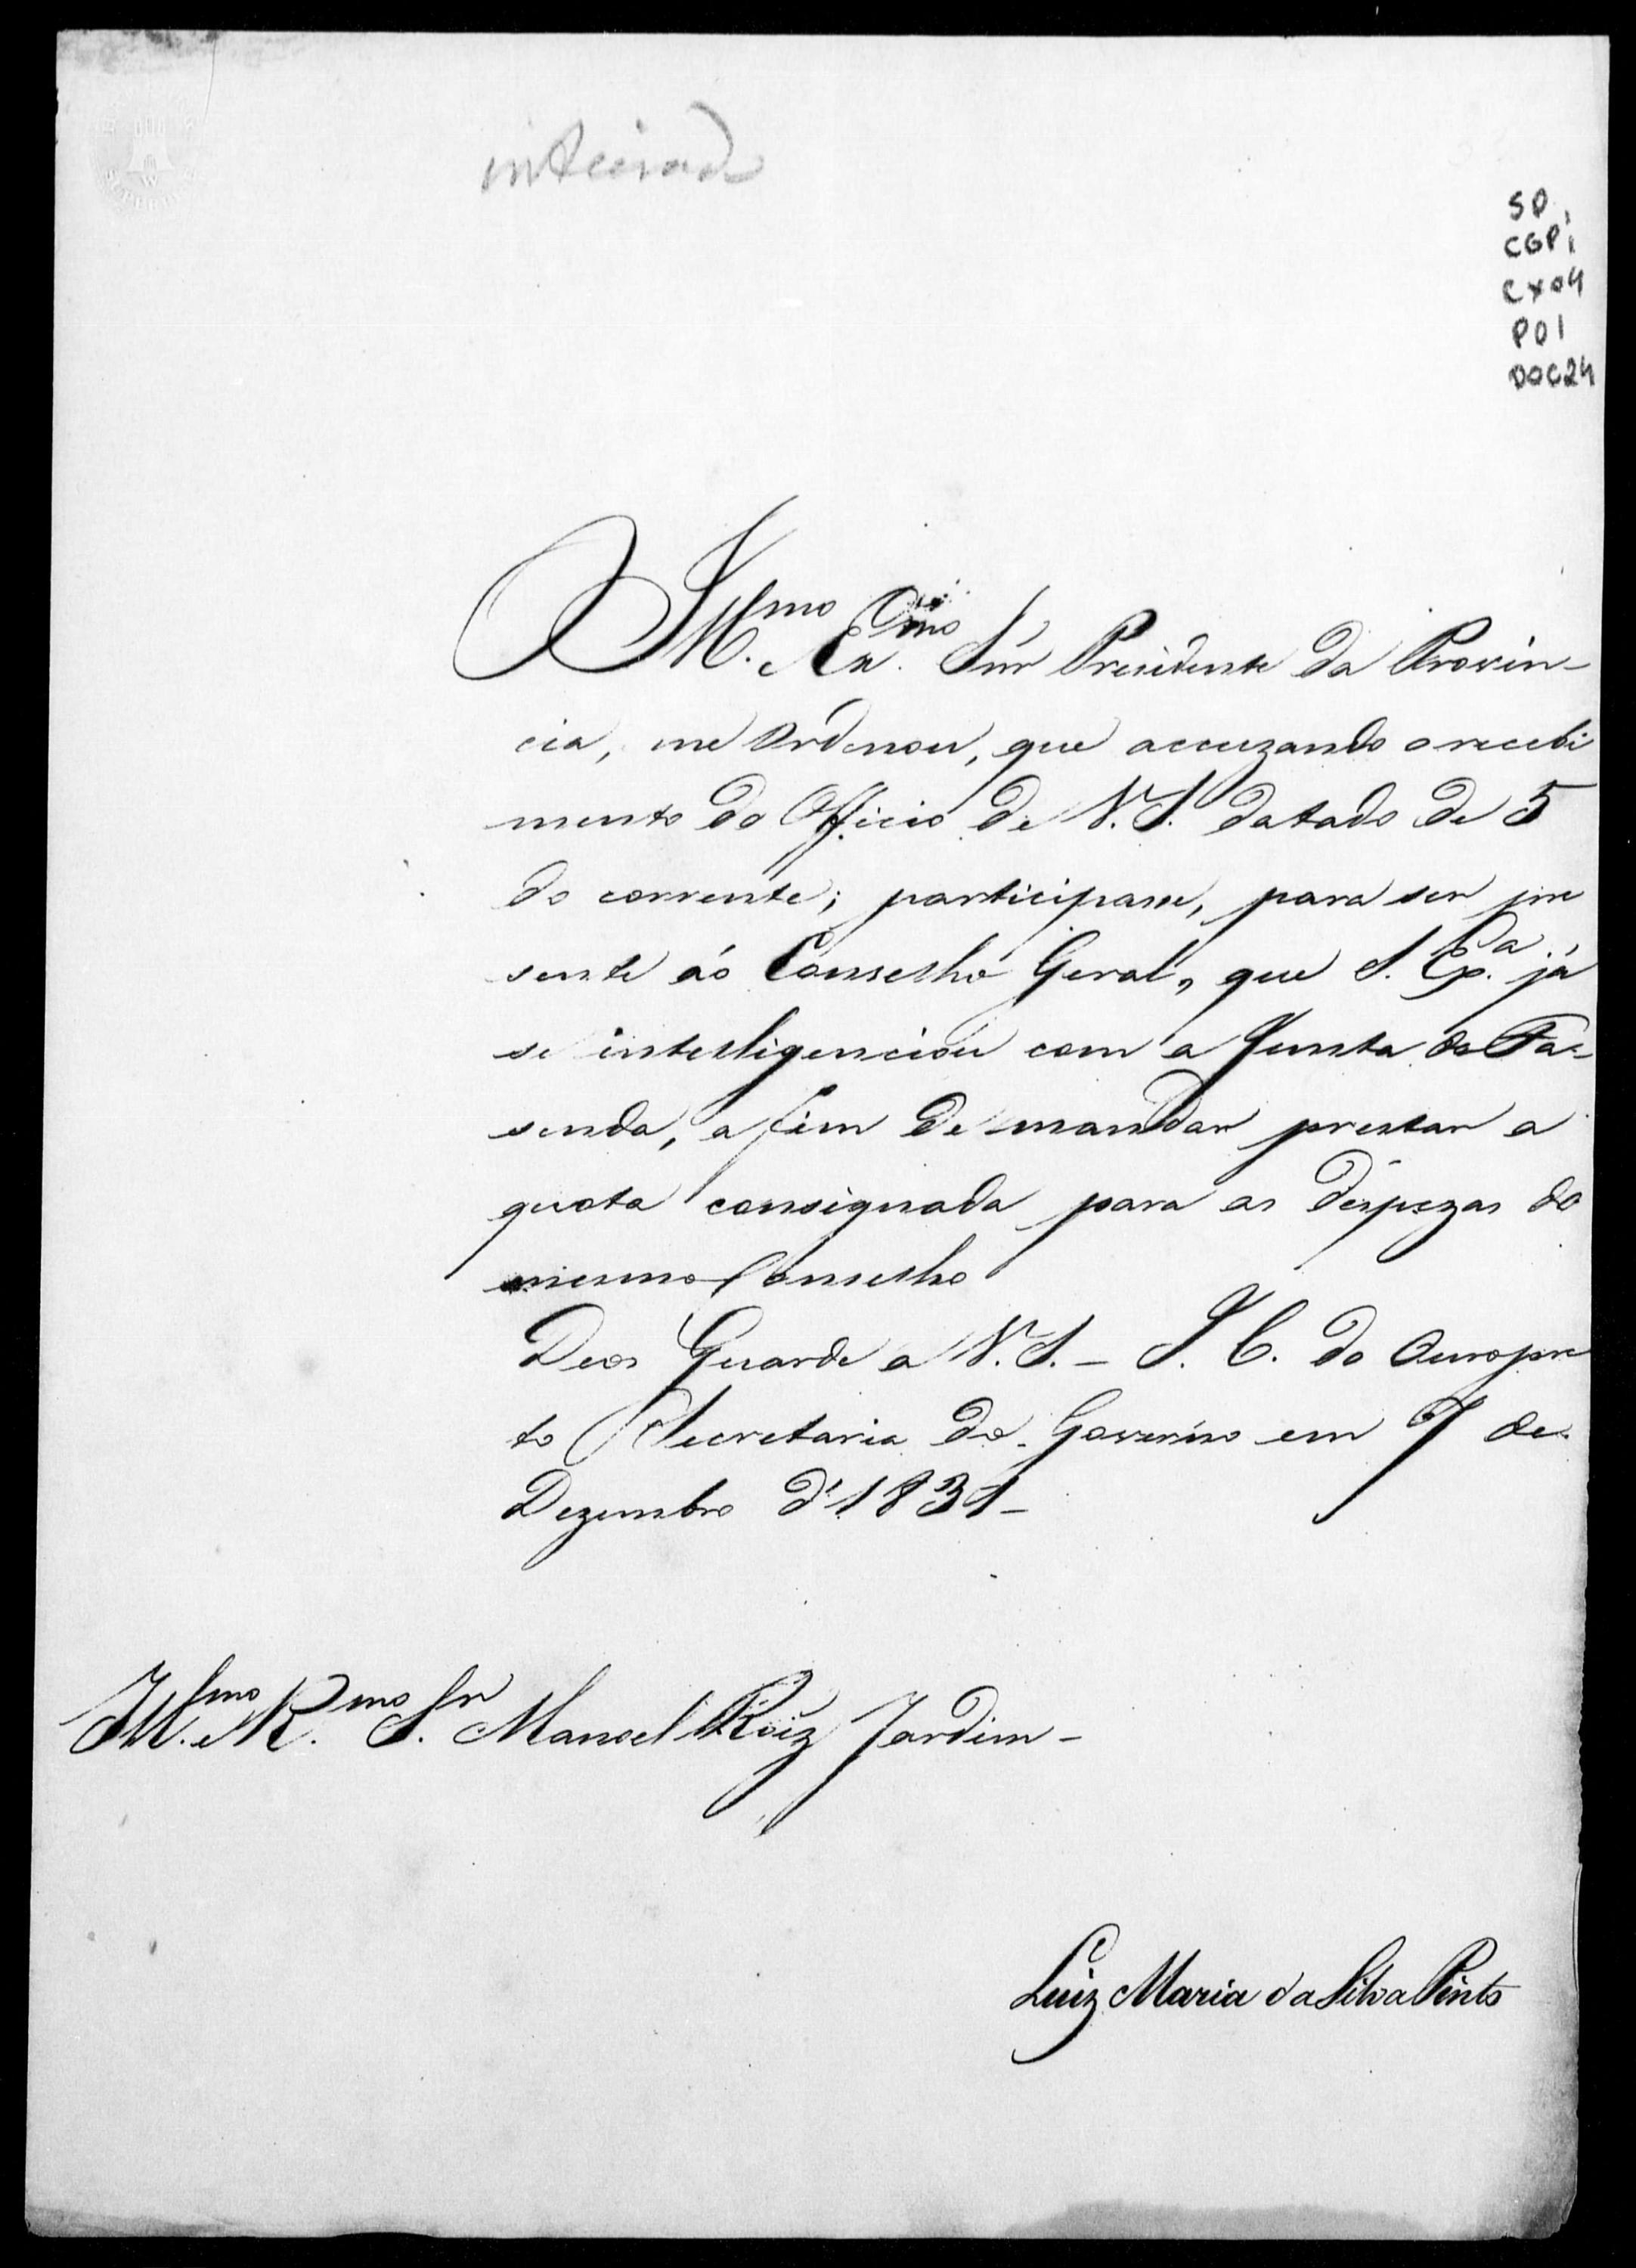 inteirado
SP
CGP1
CX04
P01
DOC24
O Ill.mo e Ex.mo Snr Presidente da Provin-
cia, me Ordenou, que accuzando o recebi
mento do Officio de V. S. datado de 5
do corrente; participasse, para ser pre
sente áo Conselho Geral, que S. Ex.a já
se intelligenciou com a Junta da Fa-
senda, a fim de mandar prestar a
quota consignada para as despezas do
mesmo Conselho
Deos Guarde a V. S. - I. C. do Ouropre
to Secretaria do Governo em 7 de
Dezembro d'1831-
Ill.mo e R.mo S.r Manoel Roiz Jardim-
Luiz Maria da Silva Pinto